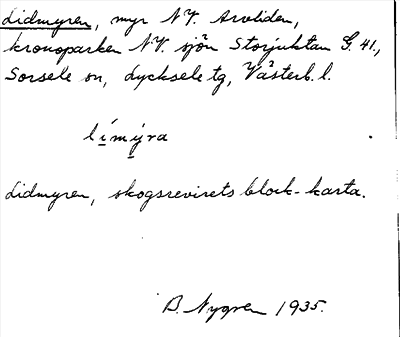 Lidmyren, myr N.V. Arvliden,
kronoparken N.V. sjön Storjuktan G. 41.,
Sorsele sn, Lycksele tg, Västerb. l.
límýra
Lidmyren, skogsrevirets block-karta.
B. Nygren 1935.